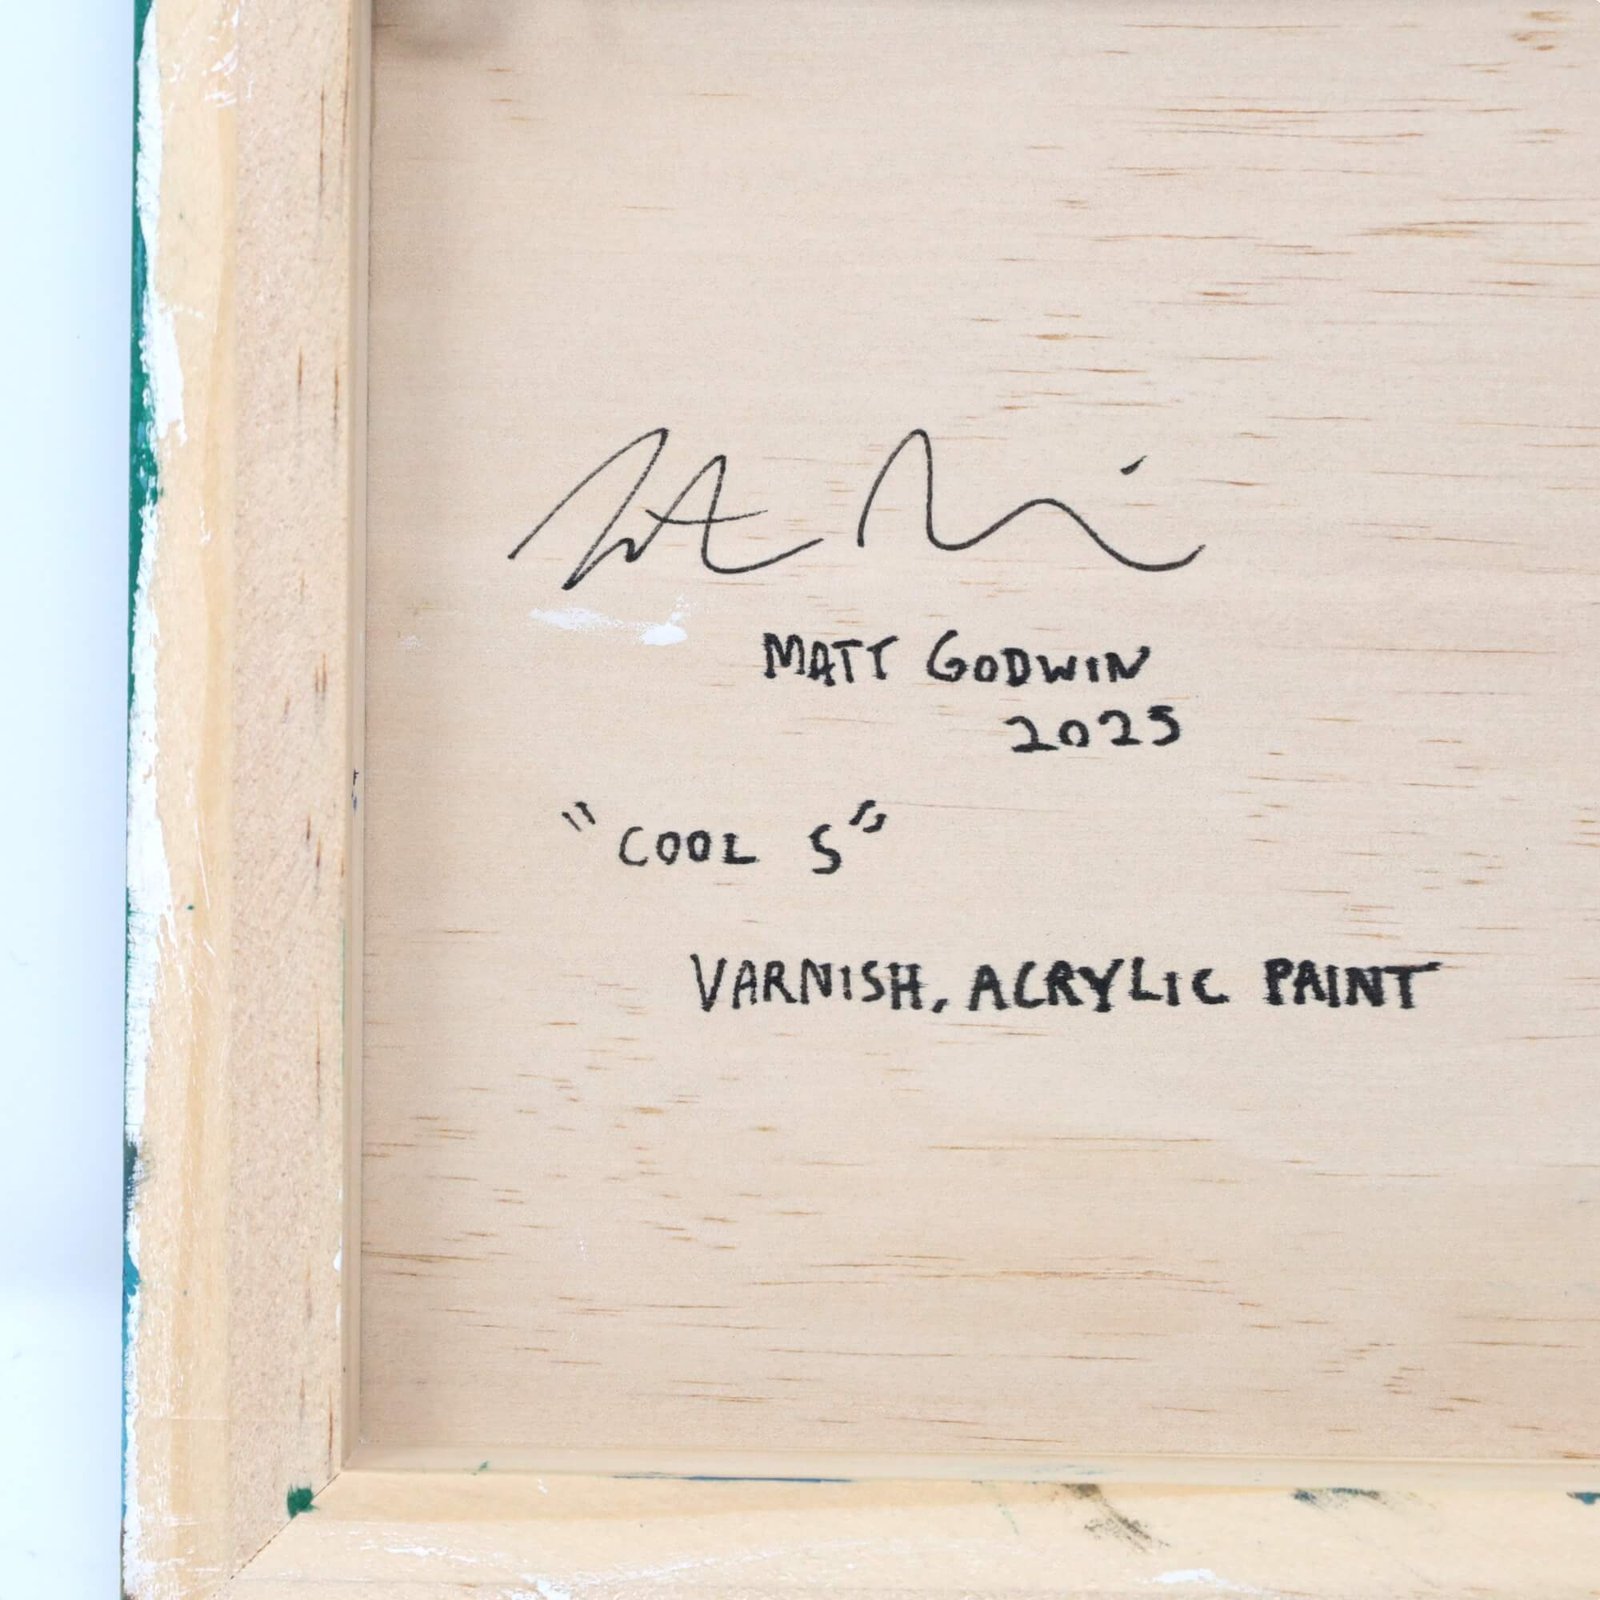 MATT GODWIN
2025
"COOL S"
VARNISH, ACRYLIC PAINT